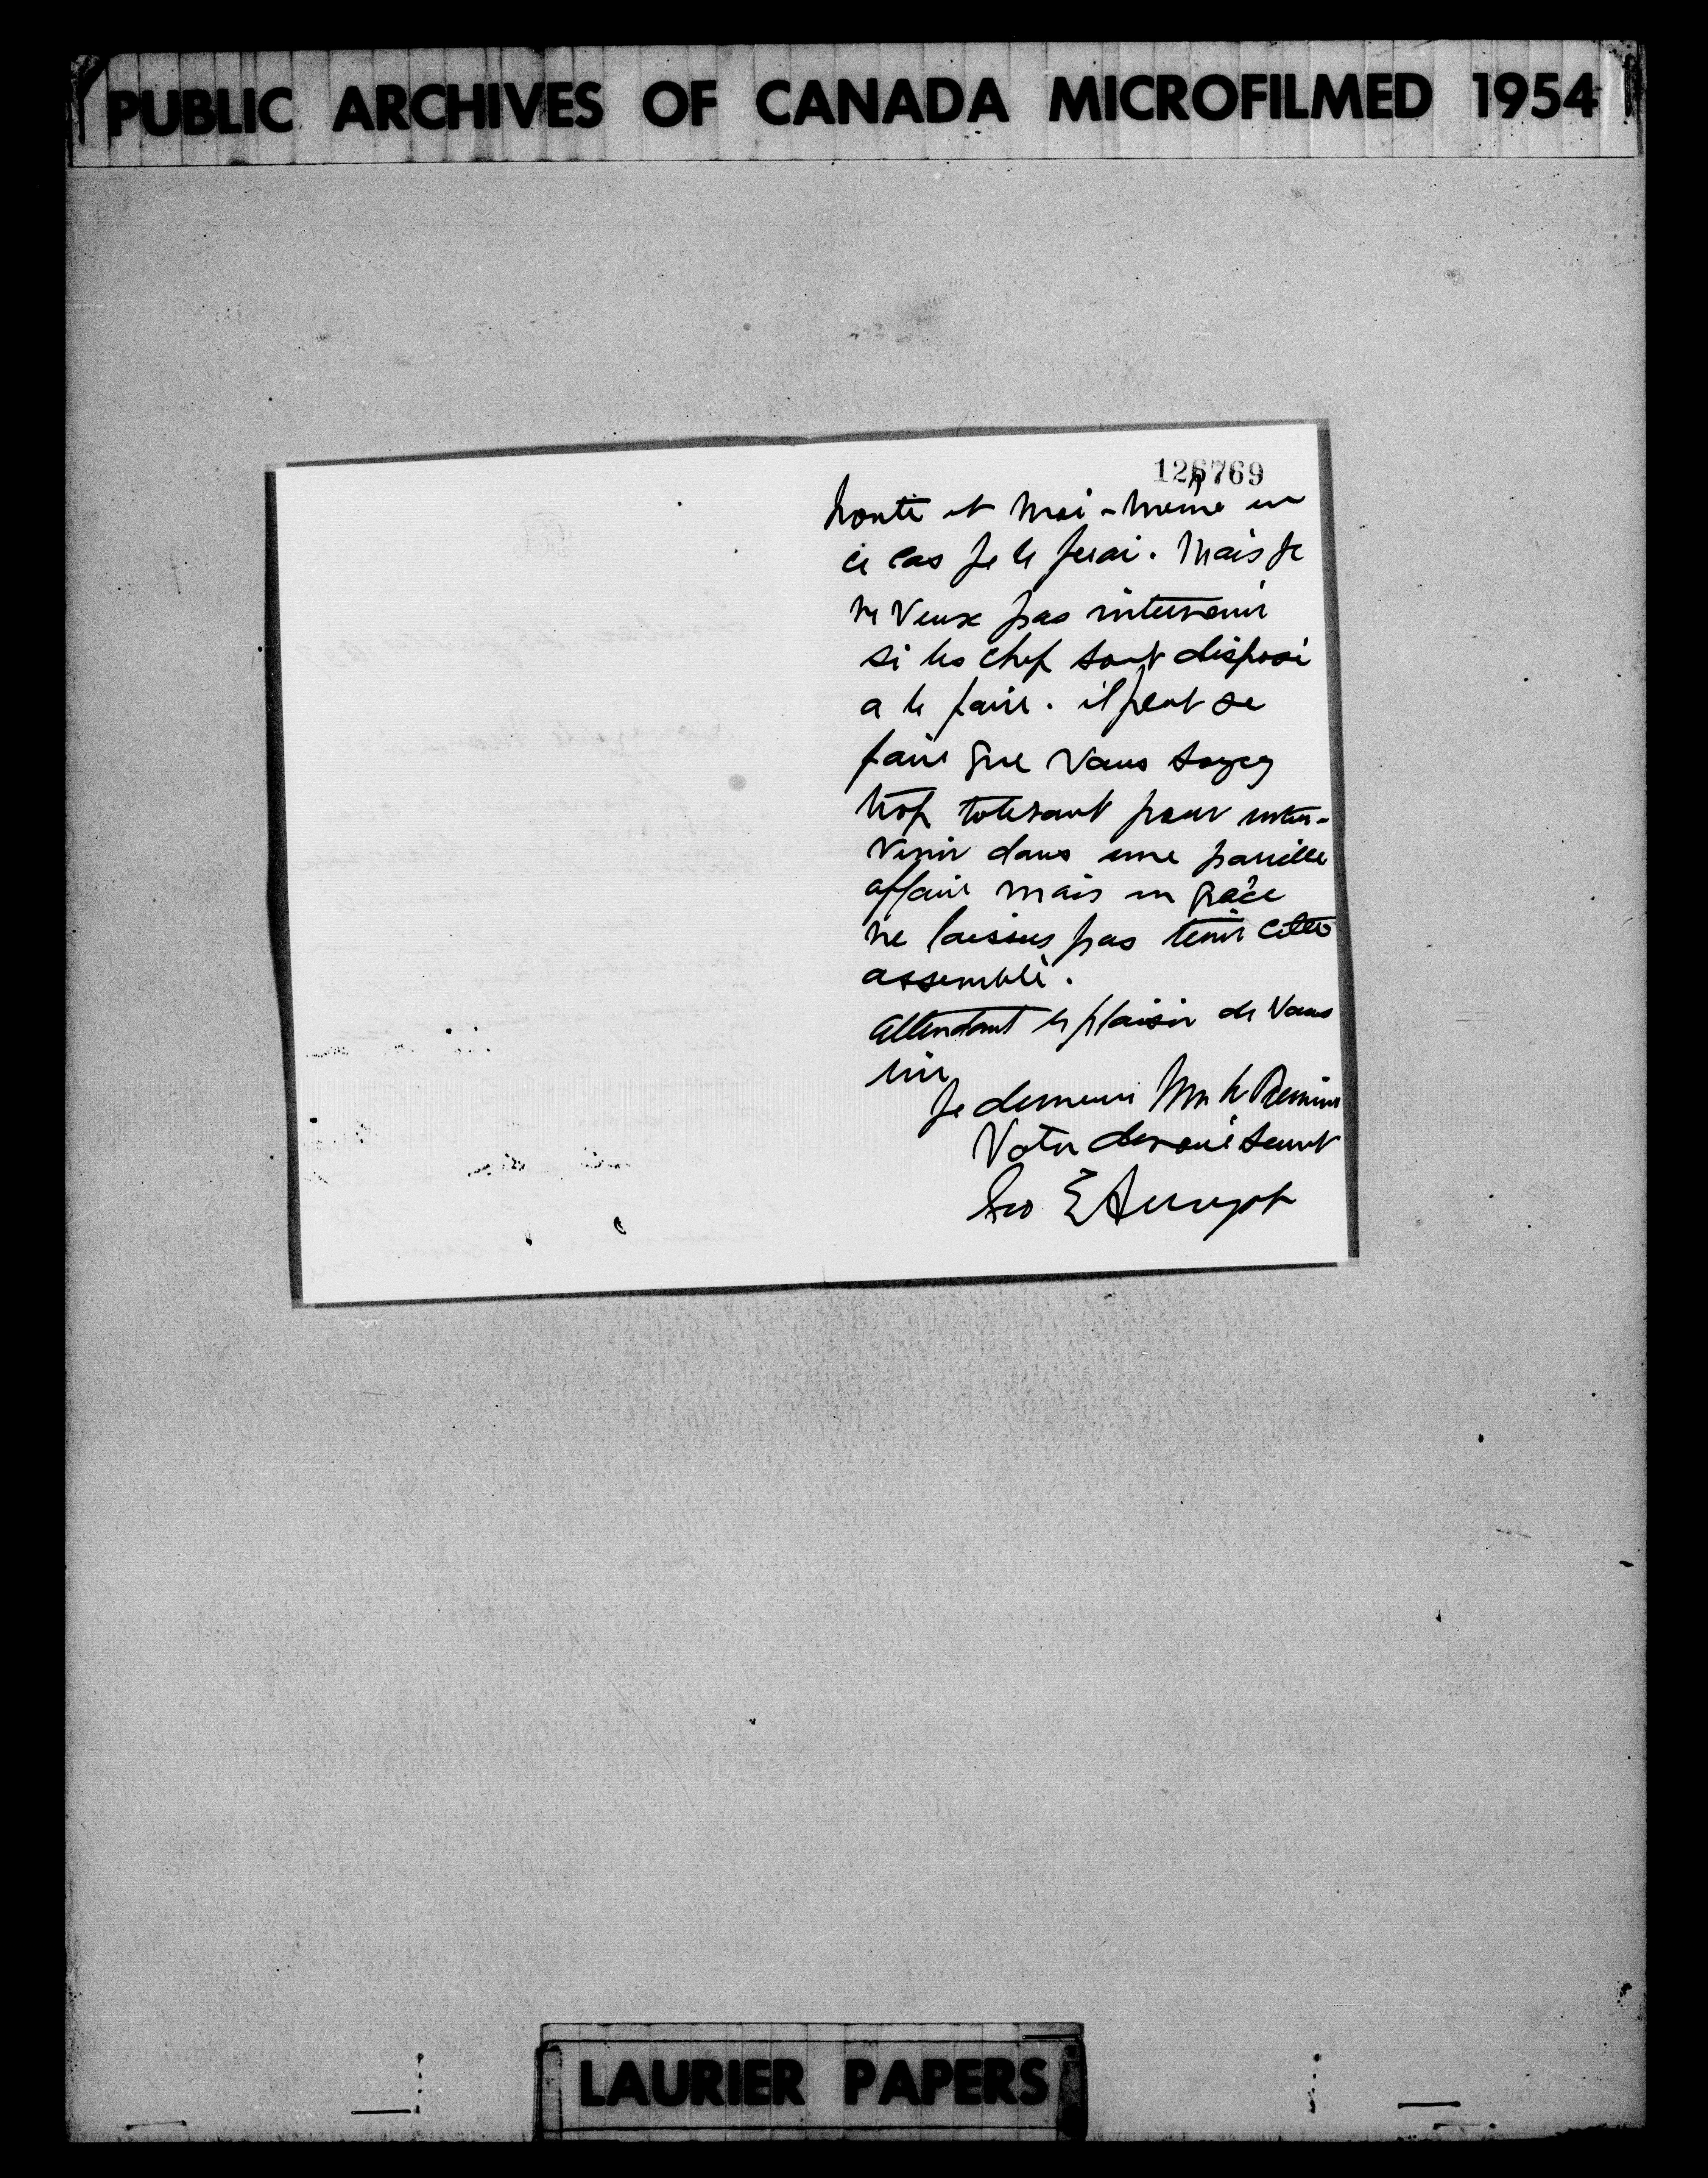 PUBLIC ARCHIVES OF CANADA MICROFILMED 1954
126769
honte et moi-même en
ce cas je le ferai. Mais je
ne veux pas intervenir
si les chef sont disposé
a le faire. il peut se
faire que vous soyez
trop tolerant pour inter-
venir dans une pareille
affaire mais en grâce
ne laisses pas tenir cette
assemblé.
Attendant le plaisir de vous
lire
Je demeure Mr le Premier
Votre devoué servt
Geo E Amyot
LAURIER PAPERS